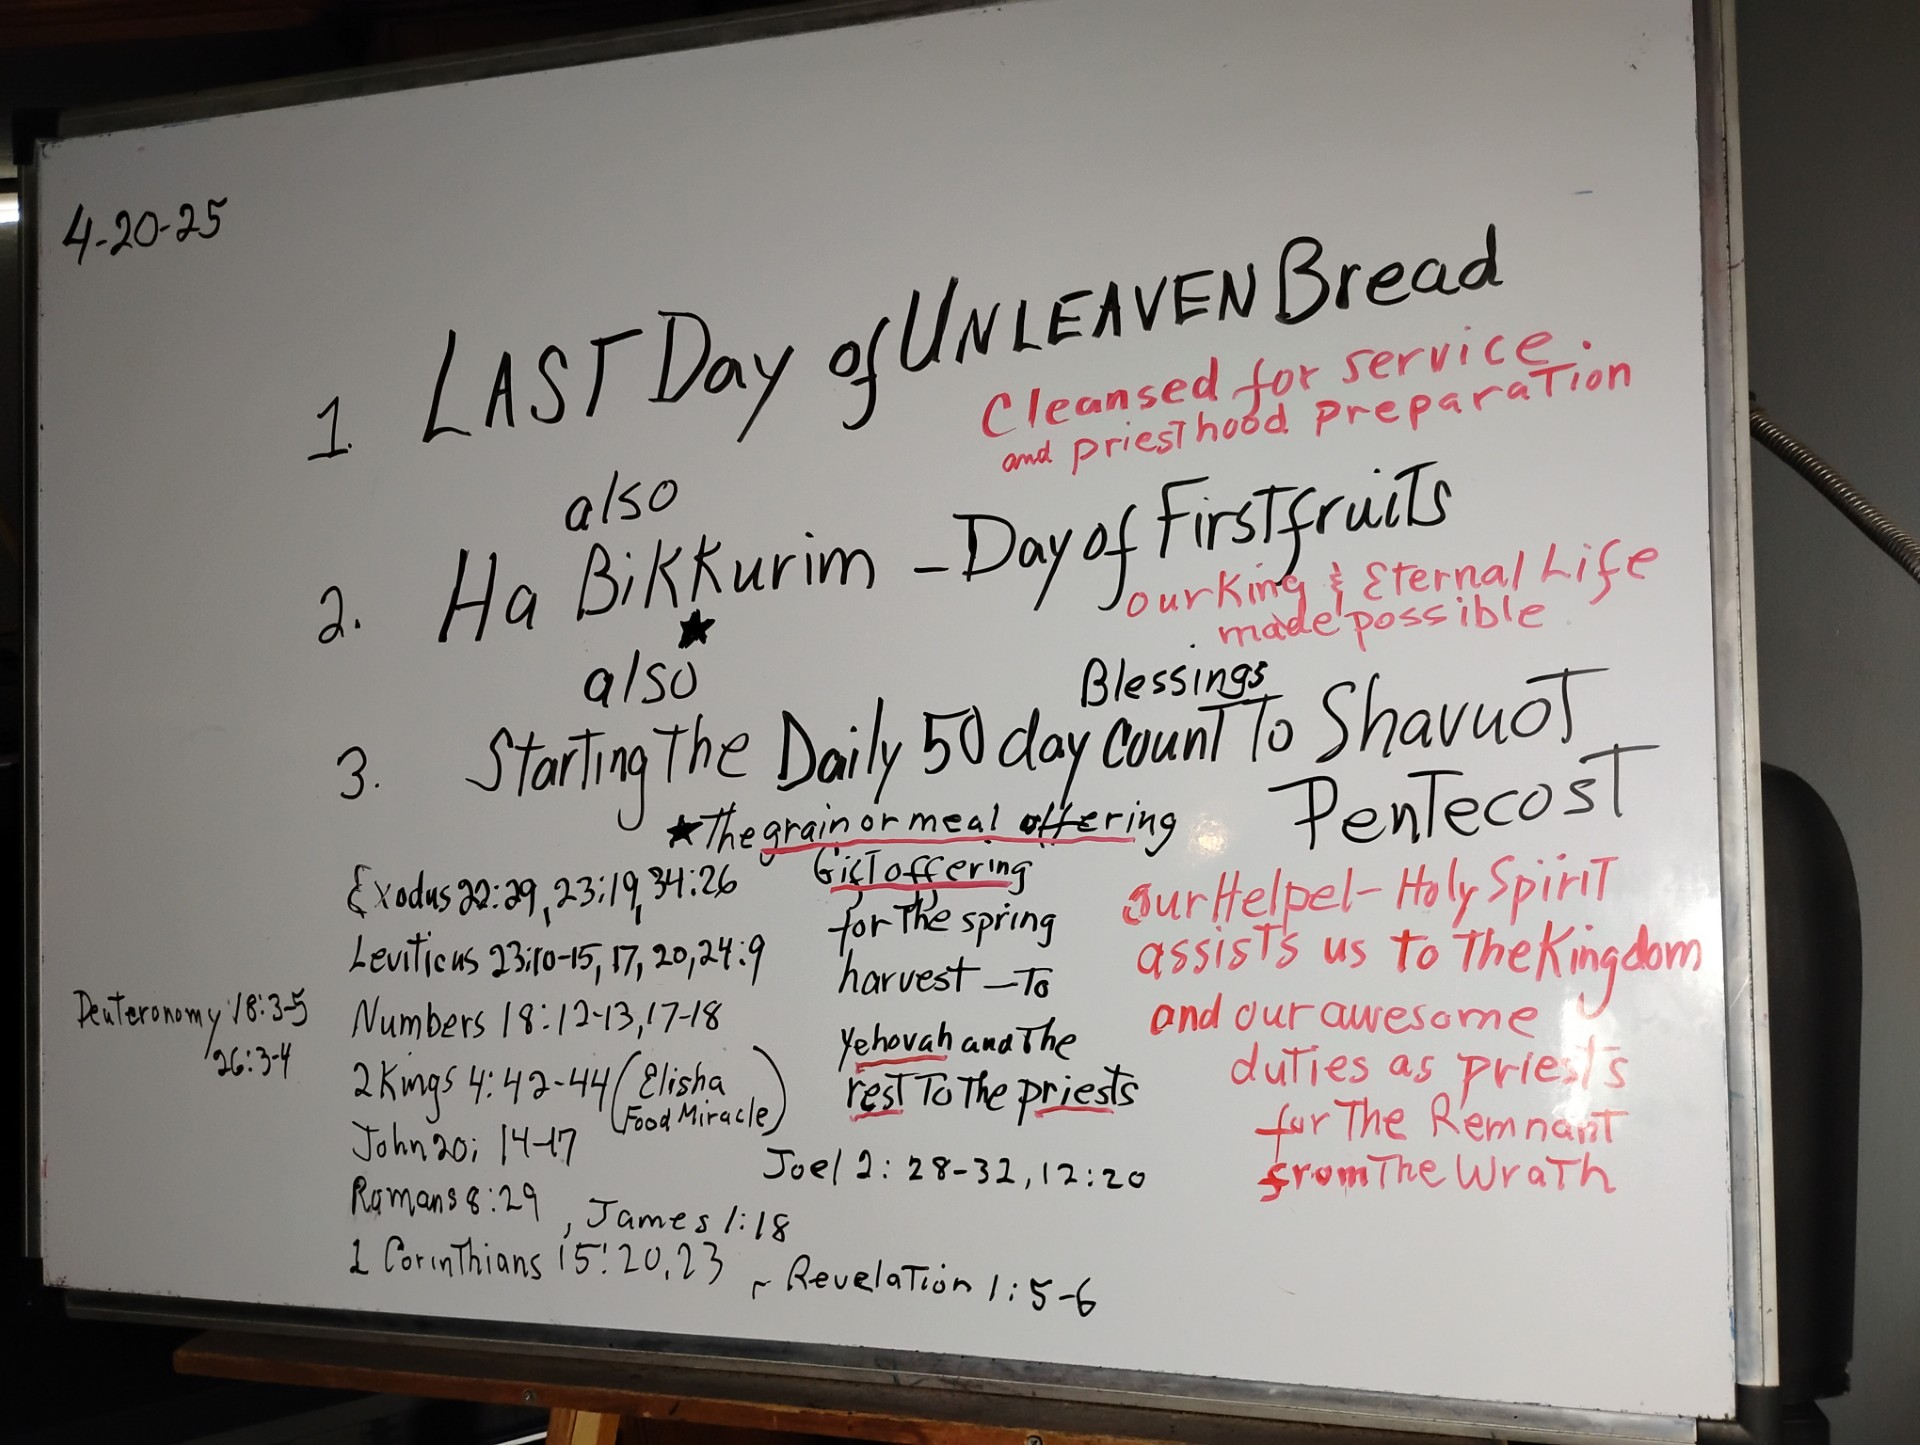 4-20-25
1. LAST Day of UNLEAVEN Bread
Cleansed for service.
and priesthood preparation
also
2. Ha Bikkurim - Day of Firstfruits
★
our King & Eternal Life
made possible
also
Blessings
3. Starting the Daily 50 day count To Shavuot
Pentecost
★ The grain or meal offering
Gift offering
for The spring
harvest - To
Yehovah and The
rest To The priests
Exodus 22:29, 23:19, 34:26
Leviticus 23:10-15, 17, 20, 24:9
Deuteronomy 18:3-5
26:3-4
Numbers 18:12-13, 17-18
2 Kings 4:42-44 (Elisha
Food Miracle)
John 20; 14-17
Joel 2:28-32, 12:20
Romans 8:29, James 1:18
1 Corinthians 15:20, 23 ~ Revelation 1:5-6
Our Helpel - Holy Spirit
assists us to The Kingdom
and our awesome
duties as priests
for The Remnant
from The Wrath